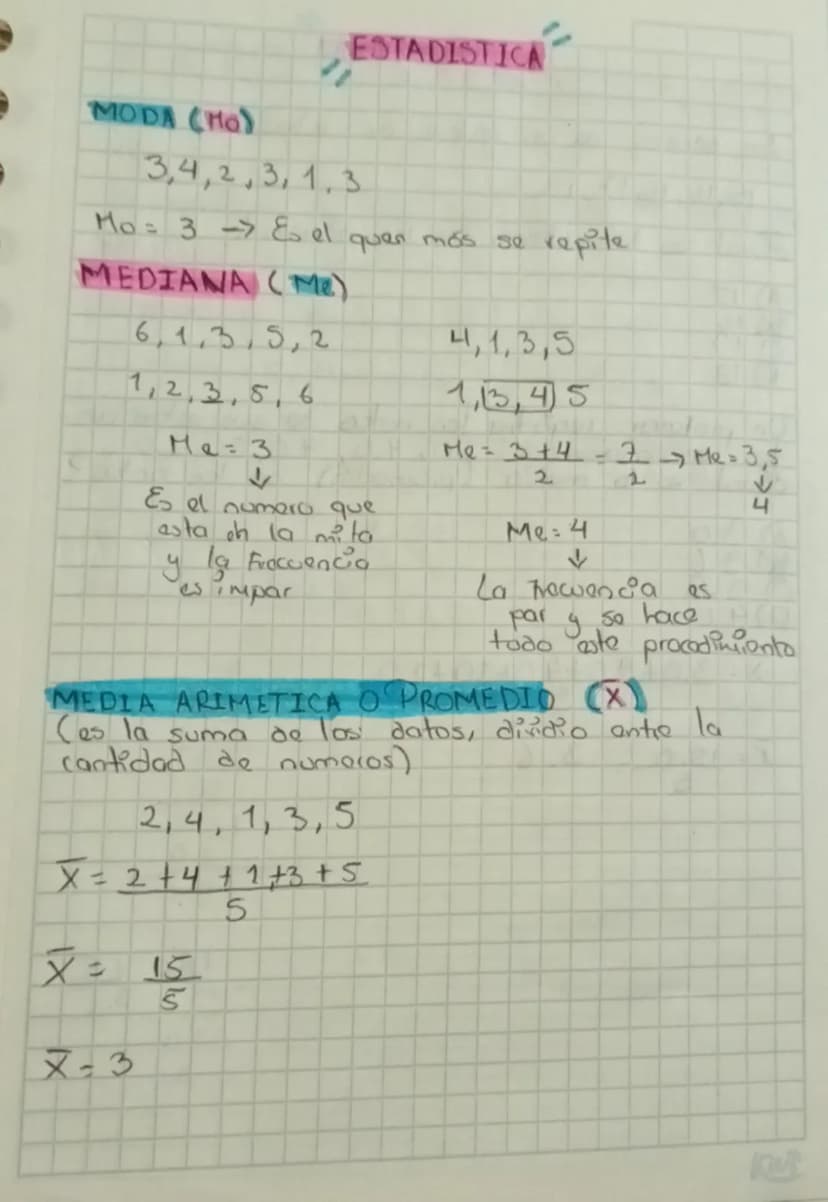 ESTADISTICA
MODA (Mo)
3,4,2,3,1,3
Mo = 3 → Es el que más se repite
MEDIANA (Me)
6,1,3,5,2
1,2,3,5,6
Me = 3
↓
Es el numero que
esta en la mita
y la Frecuencia
es impar
4,1,3,5
1,3,4,5
Me = 3+4/2 = 7/2 → Me = 3,5
↓
4
Me = 4
↓
La Frecuencia es
par y se hace
todo este procedimiento
MEDIA ARIMETICA O PROMEDIO (X̅)
(es la suma de los datos, dividio entre la
cantidad de numeros)
2,4,1,3,5
X̅ = 2+4+1+3+5/5
X̅ = 15/5
X̅ = 3